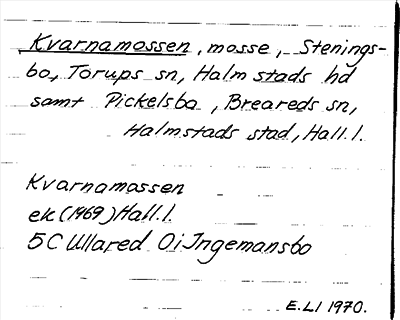 Kvarnamossen, mosse, Stenings-
bo, Torups sn, Halmstads hd
samt Pickelsbo, Breareds sn,
Halmstads stad, Hall. l.
Kvarnamossen
ek (1969) Hall. l.
5C Ullared 0i Ingemansbo
E. LI 1970.